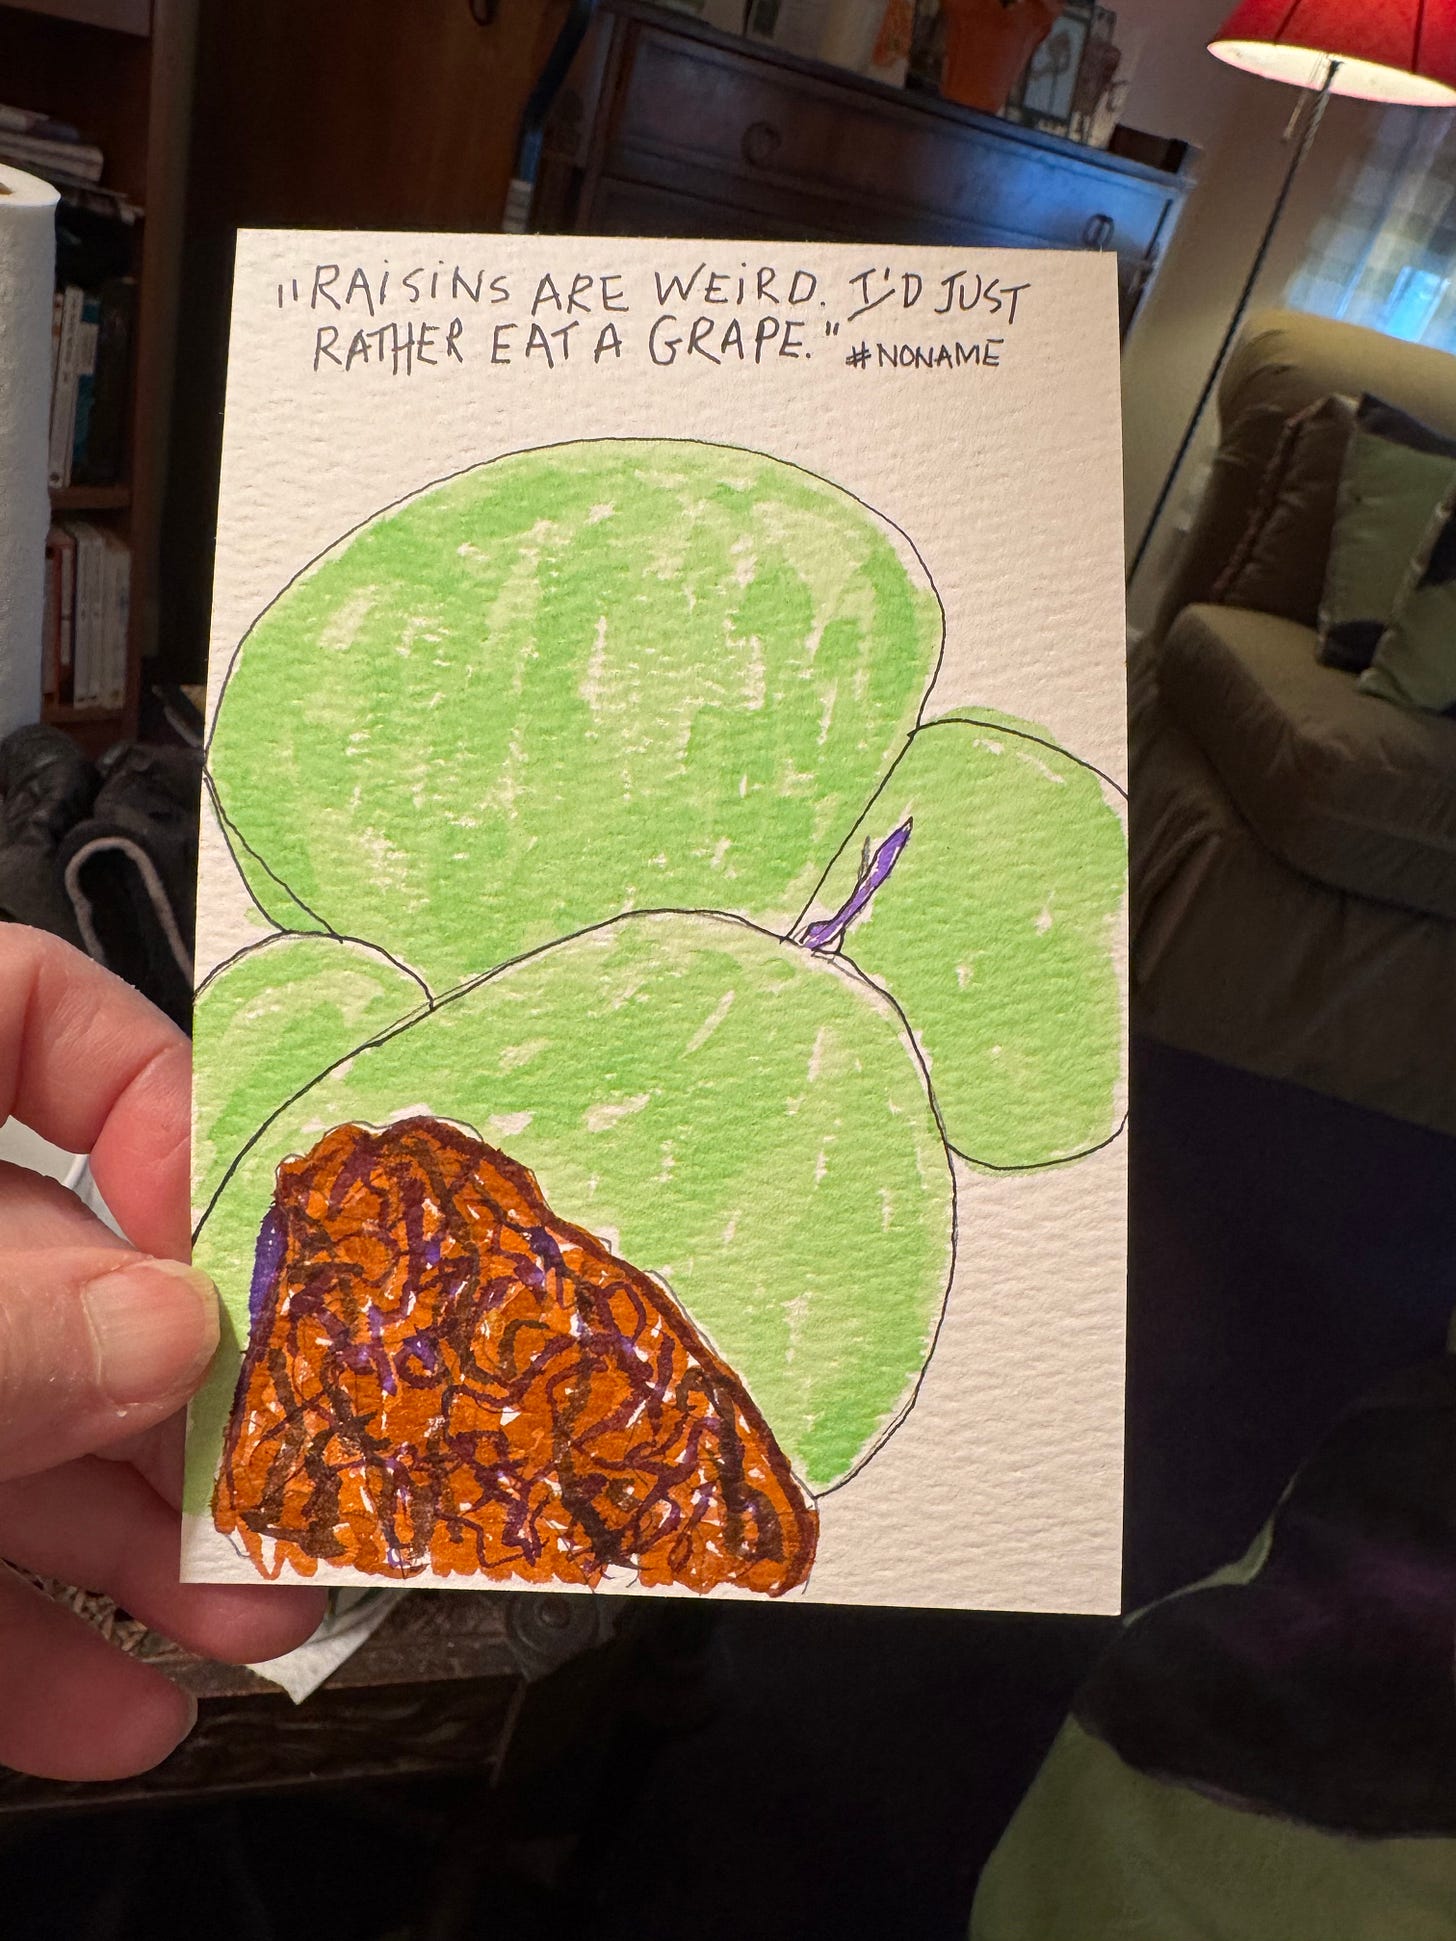 "RAISINS ARE WEIRD. I'D JUST
RATHER EAT A GRAPE." #NONAME